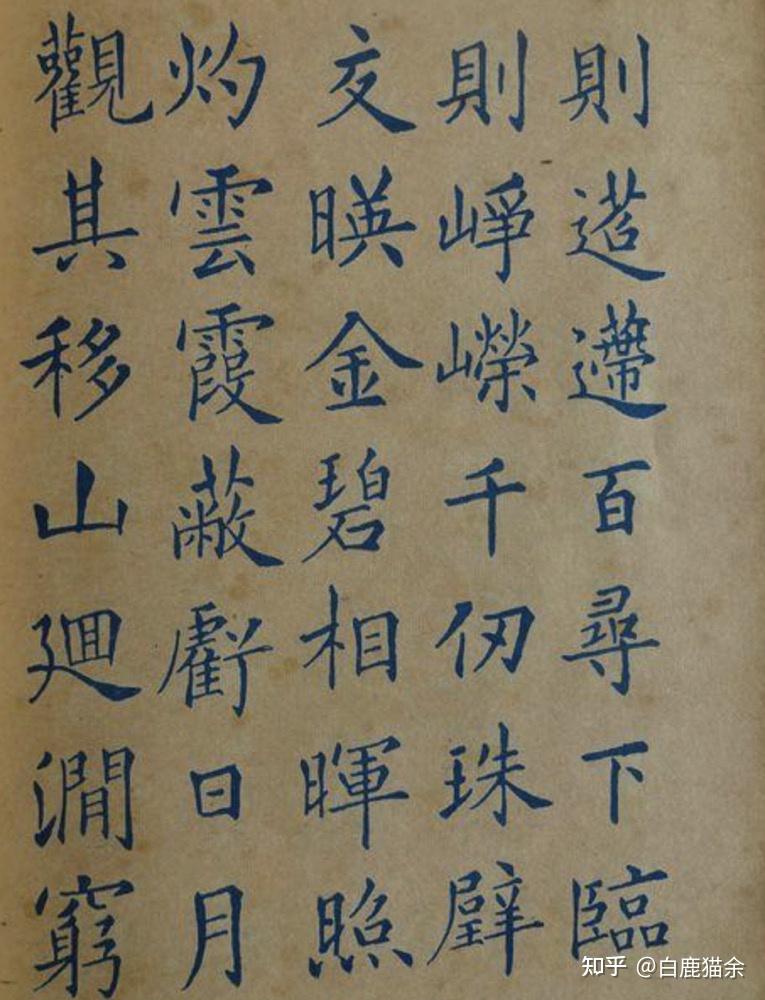 則迢遰百尋下臨
則崢嶸千仞珠璧
交暎金碧相暉照
灼雲霞蔽虧日月
觀其移山廻澗窮
知乎 @白鹿猫余